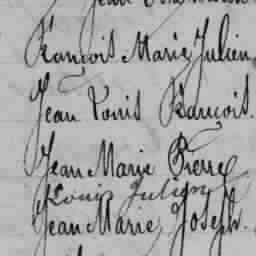 Jean
François Marie Julien
Jean Louis François.
Jean Marie Pierre
Louis Julien
Jean Marie Joseph.